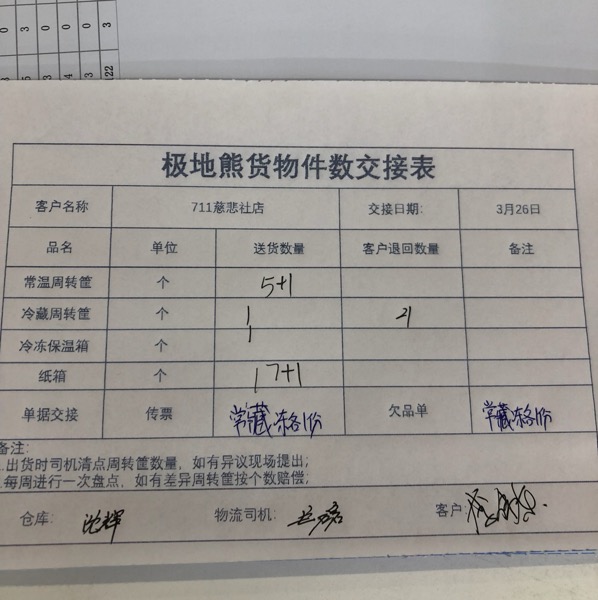 3 0 0 0 3
3 5 3 4 3 122
极地熊货物件数交接表
客户名称 711慈悲社店 交接日期: 3月26日
品名 单位 送货数量 客户退回数量 备注
常温周转筐 个 5+1
冷藏周转筐 个 1 21
冷冻保温箱 个 1
纸箱 个 17+1
单据交接 传票 常藏冻各1份 欠品单 常藏冻各1份
备注:
.出货时司机清点周转筐数量，如有异议现场提出;
.每周进行一次盘点，如有差异周转筐按个数赔偿;
仓库: 沈辉 物流司机: 客户: